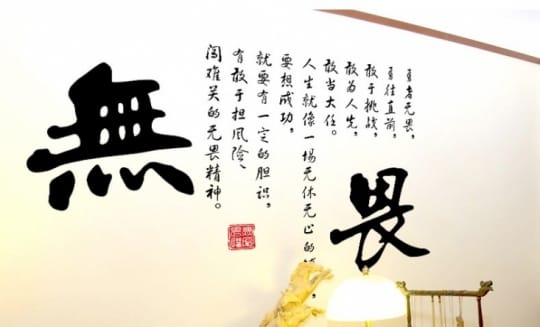 無畏
勇者无畏，
勇往直前，
敢于挑战，
敢为人先，
敢当大任。
人生就像一場无休无止的
要想成功，
就要有一定的胆识，
有敢于担风险、
闯难关的无畏精神。